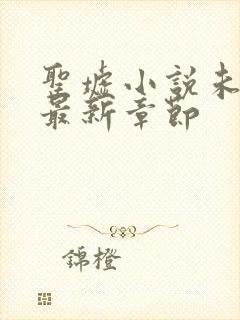 聖墟小說未
最新章節
錦橙